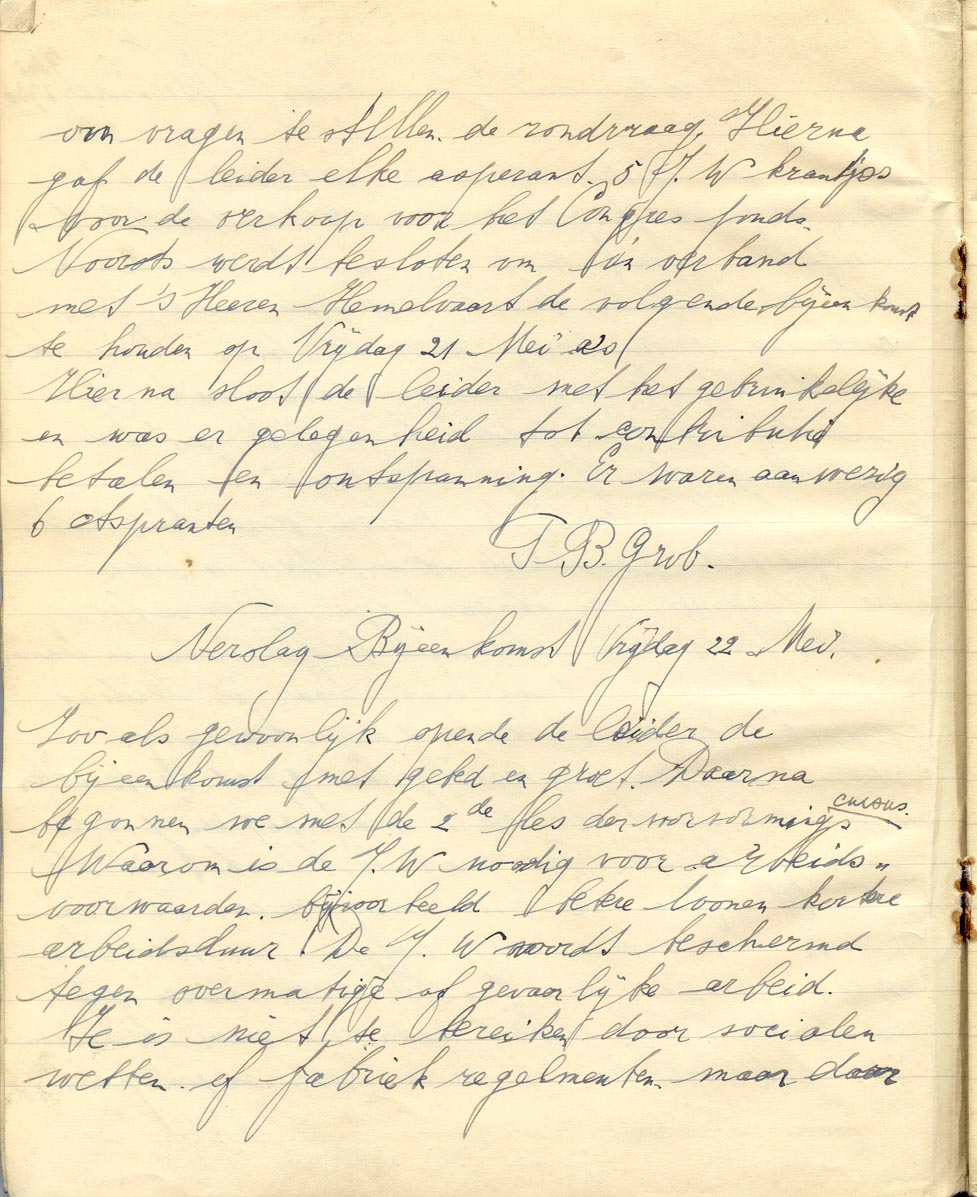 om vragen te stellen. de rondvraag. Hierna
gaf de leider elke asperant. 5 J. W krantjes
voor de verkoop voor het Congres fonds.
Voorts werdt besloten om in verband
met 's Heeren Hemelvaart de volgende bijeenkomst
te houden op Vrijdag 21 Mei a's
Hierna sloot de leider met het gebruikelijke
en was er gelegenheid tot contributie
betalen en ontspanning. Er waren aanwezig
6 Aspranten
T B. Grob.
Verslag Bijeenkomst Vrijdag 22 Mei.
Zooals gewoonlijk opende de leider de
bijeenkomst met gebed en groet. Daarna
begonnen we met de 2de les der voorvormings cursus.
Waarom is de J. W noodig voor arbeids"
voorwaarden. bijvoorbeeld betere loonen kortere
arbeidsduur. De J. W wordt beschermd
tegen overmatige of gevaarlijke arbeid.
Je is niet te bereiken door socialen
wetten of fabriek regelmenten maar door